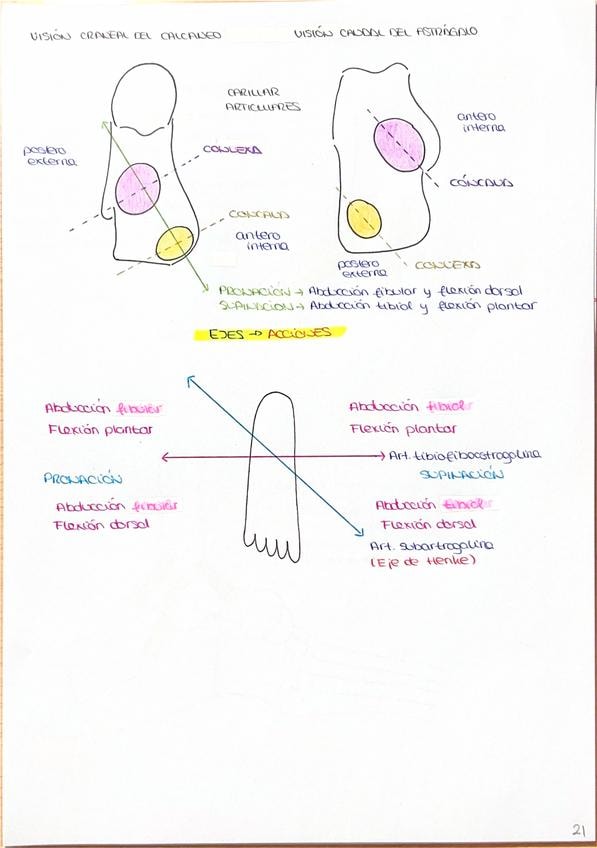 VISIÓN CRANEAL DEL CALCANEO
VISIÓN CAUDAL DEL ASTRÁGALO
CARILLAR
ARTICULARES
postero
externa
CONVEXA
CONCAVA
antero
interna
antero
interna
CÓNCAVA
postero
externa
CONVEXA
PRONACIÓN → Abducción fibular y flexión dorsal
SUPINACIÓN → Abducción tibial y flexión plantar
EJES → ACCIONES
Abducción fibular
Flexión plantar
Abducción tibial
Flexión plantar
Art. tibiofiboastragalina
PRONACIÓN
SUPINACIÓN
Abducción fibular
Flexión dorsal
Abducción tibial
Flexión dorsal
Art. subartragalina
(Eje de Henke)
21